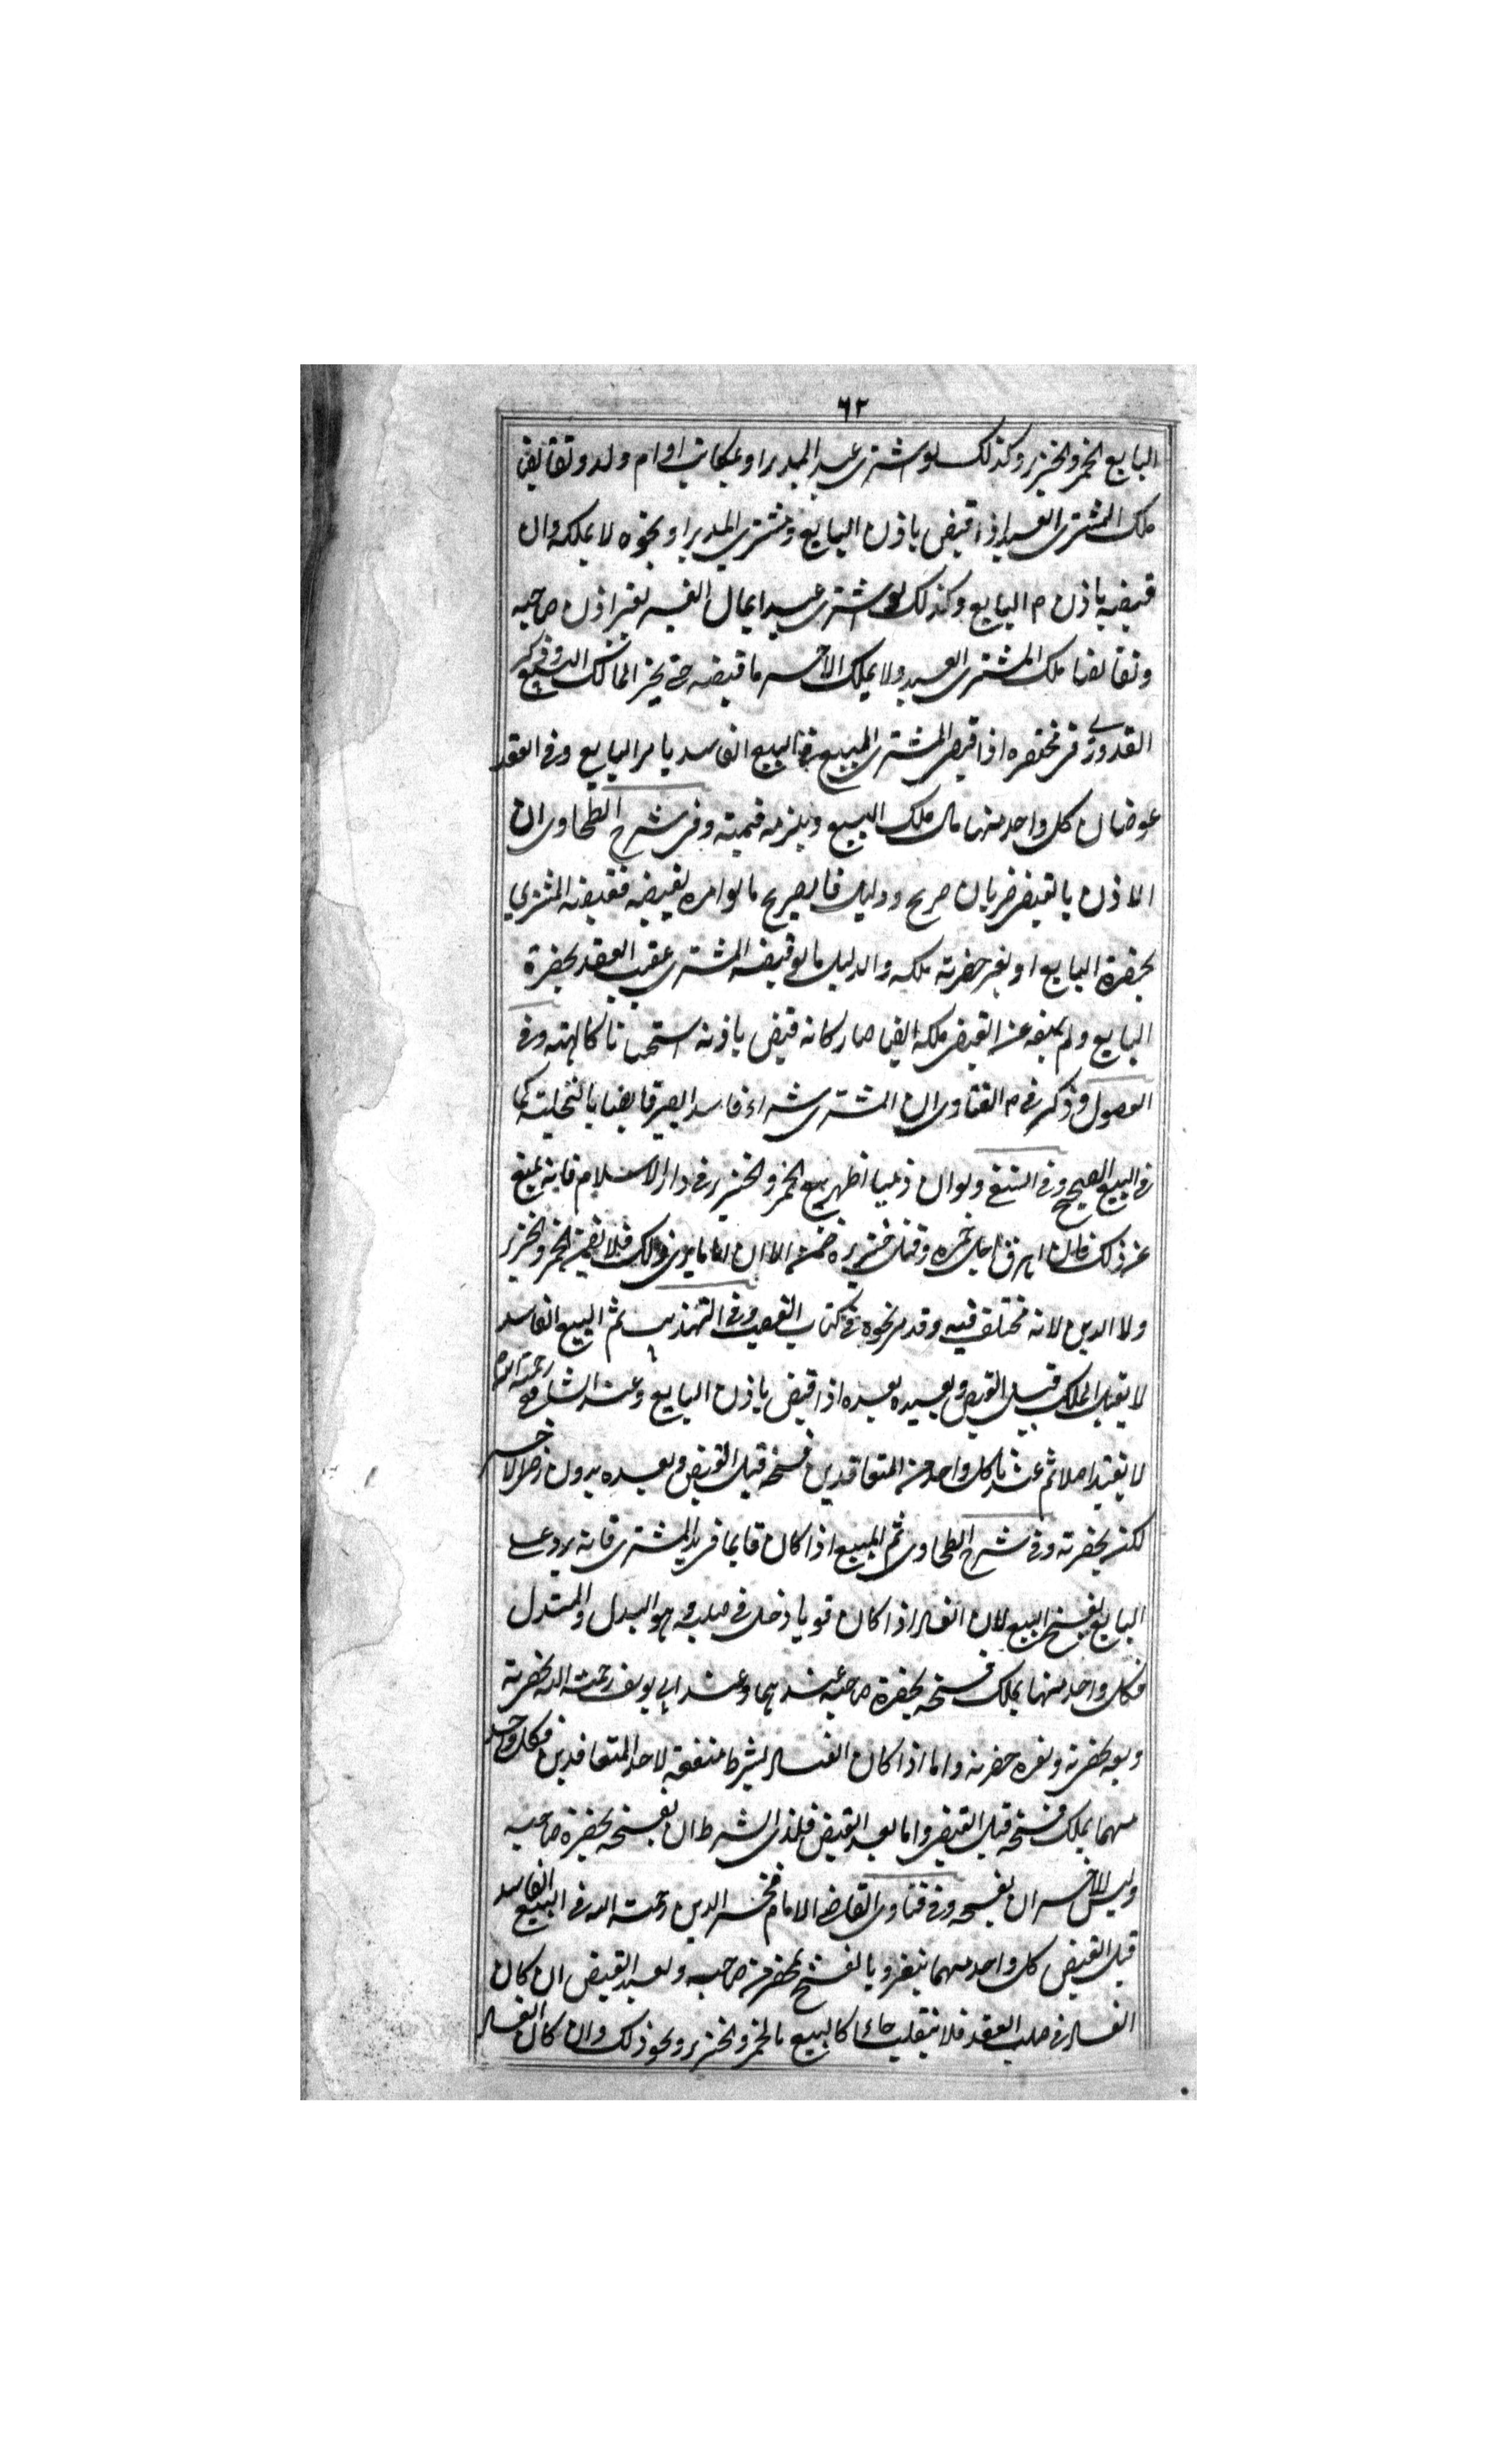 ٦٢
البايع الخمر والخنزير وكذلك لو اشترى عبد المدبر او بمكاتب او ام ولد وتقابضا
ملك المشترى العبد اذا قبض باذن البايع ومشترى المدبر او نحوه لا يملكه وان
قبضه باذن البايع وكذلك لو اشترى عبدا بمال الغير بغير اذن صاحبه
وتقابضا ملك المشترى العبد ولا يملك الآخر ما قبضه حتى يجيز المالك البيع وذكر
القدورى فى مختصره اذا قبض المشترى المبيع فى البيع الفاسد بامر البايع وفى العقد
عوضان كل واحد منهما مال ملك المبيع ويلزمه قيمته وفى شرح الطحاوى ان
الاذن بالقبض ضربان صريح ودليل فالصريح ما لو امره بقبضه فقبضه المشترى
بحضرة البايع او بغير حضرته ملكه والدليل ما لو قبضه المشترى عقيب العقد بحضرة
البايع ولم يمنعه عن القبض ملكه ايضا صار كانه قبض باذنه استحسانا كالهبة وفى
الفصول وذكر فى الفتاوى ان المشترى شراء فاسدا يصير قابضا بالتخلية كما
فى البيع الصحيح وفى ولو ان ذميا اظهر بيع الخمر والخنزير فى دار الاسلام فانه يمنع
عن ذلك فان اراق رجل خمره وقتل خنزيره ضمنه الا ان اماما يرى ذلك فلا يضمن الخمر والخنزير
ولا الدين لانه مختلف فيه وقد مر نحوه فى كتاب الغصب وفى التهذيب ثم البيع الفاسد
لا يفيد الملك قبل القبض ويفيده بعده اذا قبض باذن البايع وعند الشافعى رحمة الله
لا يفيد اصلا ثم عندنا كل واحد من المتعاقدين فسخه قبل القبض وبعده بدون رضى الآخر
لكن بحضرته وفى شرح الطحاوى ثم المبيع اذا كان قايما فى يد المشترى فانه يرد على
البايع بفسخ البيع لان الفساد اذا كان قويا دخل فى صلبه وهو البدل والمبدل
فكل واحد منهما يملك فسخه بحضرة صاحبه عندهما وعند ابى يوسف رحمة الله بحضرته
وبغير حضرته واما اذا كان الفساد لشرط منفعة لاحد المتعاقدين فكل واحد
منهما يملك فسخه قبل القبض واما بعد القبض فلذى الشرط ان يفسخه بحضرة صاحبه
وليس للآخر ان يفسخه وفى فتاوى القاضى الامام فخر الدين رحمة الله فى البيع الفاسد
قبل القبض كل واحد منهما ينفرد بالفسخ بمحضر من صاحبه وبعد القبض ان كان
الفساد فى صلب العقد فلا ينقلب جائزا كالبيع بالخمر والخنزير ونحو ذلك وان كان الفساد